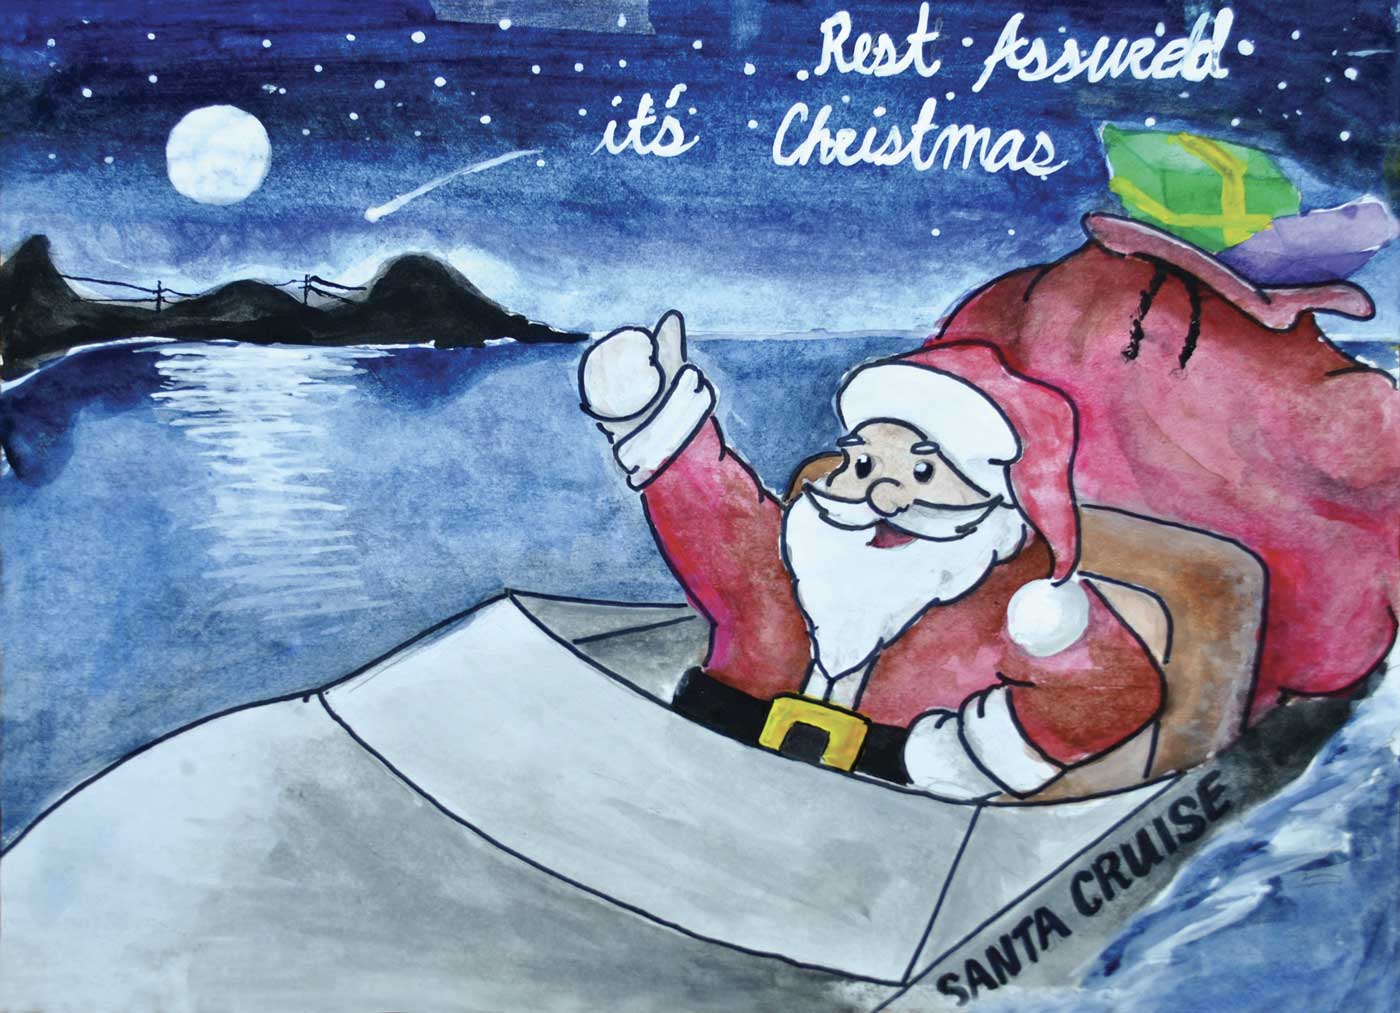 Rest Assured
it's Christmas
SANTA CRUISE